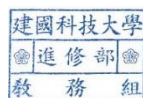 建國科技大學
進修部
教務組